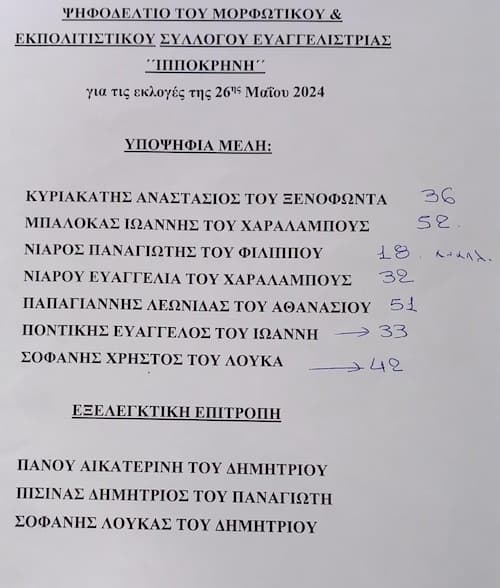 ΨΗΦΟΔΕΛΤΙΟ ΤΟΥ ΜΟΡΦΩΤΙΚΟΥ &
ΕΚΠΟΛΙΤΙΣΤΙΚΟΥ ΣΥΛΛΟΓΟΥ ΕΥΑΓΓΕΛΙΣΤΡΙΑΣ
΄΄ΙΠΠΟΚΡΗΝΗ΄΄
για τις εκλογές της 26ης Μαΐου 2024
ΥΠΟΨΗΦΙΑ ΜΕΛΗ:
ΚΥΡΙΑΚΑΤΗΣ ΑΝΑΣΤΑΣΙΟΣ ΤΟΥ ΞΕΝΟΦΩΝΤΑ 36
ΜΠΑΛΟΚΑΣ ΙΩΑΝΝΗΣ ΤΟΥ ΧΑΡΑΛΑΜΠΟΥΣ 52
ΝΙΑΡΟΣ ΠΑΝΑΓΙΩΤΗΣ ΤΟΥ ΦΙΛΙΠΠΟΥ 18
ΝΙΑΡΟΥ ΕΥΑΓΓΕΛΙΑ ΤΟΥ ΧΑΡΑΛΑΜΠΟΥΣ 32
ΠΑΠΑΓΙΑΝΝΗΣ ΛΕΩΝΙΔΑΣ ΤΟΥ ΑΘΑΝΑΣΙΟΥ 51
ΠΟΝΤΙΚΗΣ ΕΥΑΓΓΕΛΟΣ ΤΟΥ ΙΩΑΝΝΗ → 33
ΣΟΦΑΝΗΣ ΧΡΗΣΤΟΣ ΤΟΥ ΛΟΥΚΑ → 42
ΕΞΕΛΕΓΚΤΙΚΗ ΕΠΙΤΡΟΠΗ
ΠΑΝΟΥ ΑΙΚΑΤΕΡΙΝΗ ΤΟΥ ΔΗΜΗΤΡΙΟΥ
ΠΙΣΙΝΑΣ ΔΗΜΗΤΡΙΟΣ ΤΟΥ ΠΑΝΑΓΙΩΤΗ
ΣΟΦΑΝΗΣ ΛΟΥΚΑΣ ΤΟΥ ΔΗΜΗΤΡΙΟΥ